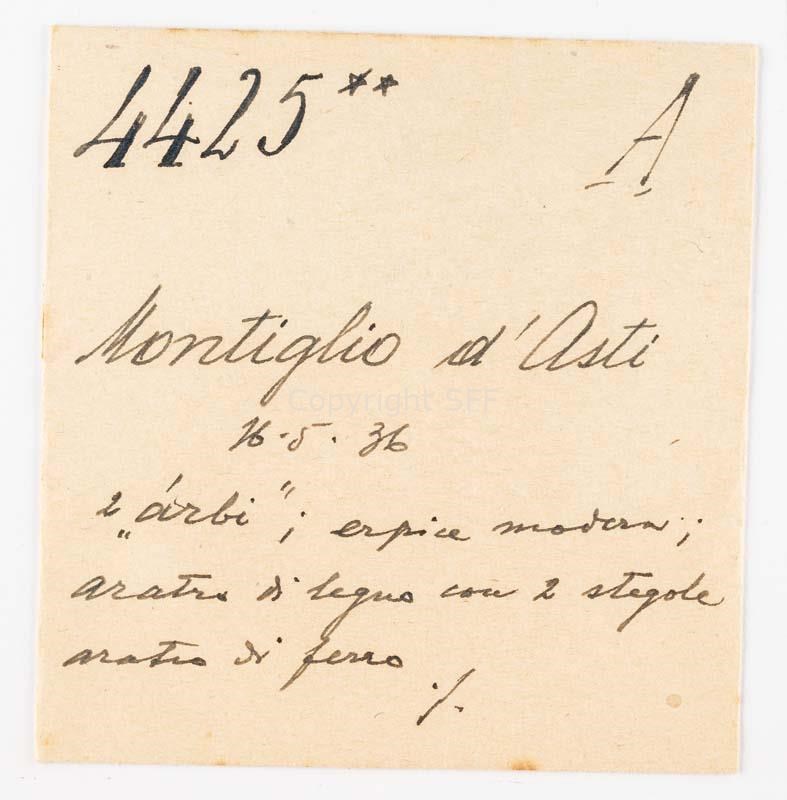 4425** A
Montiglio d'Asti
Copyright SFF
16.5.36
2 „árbi"; erpice modern;
aratro di legno con 2 stegole
aratro di ferro
./.